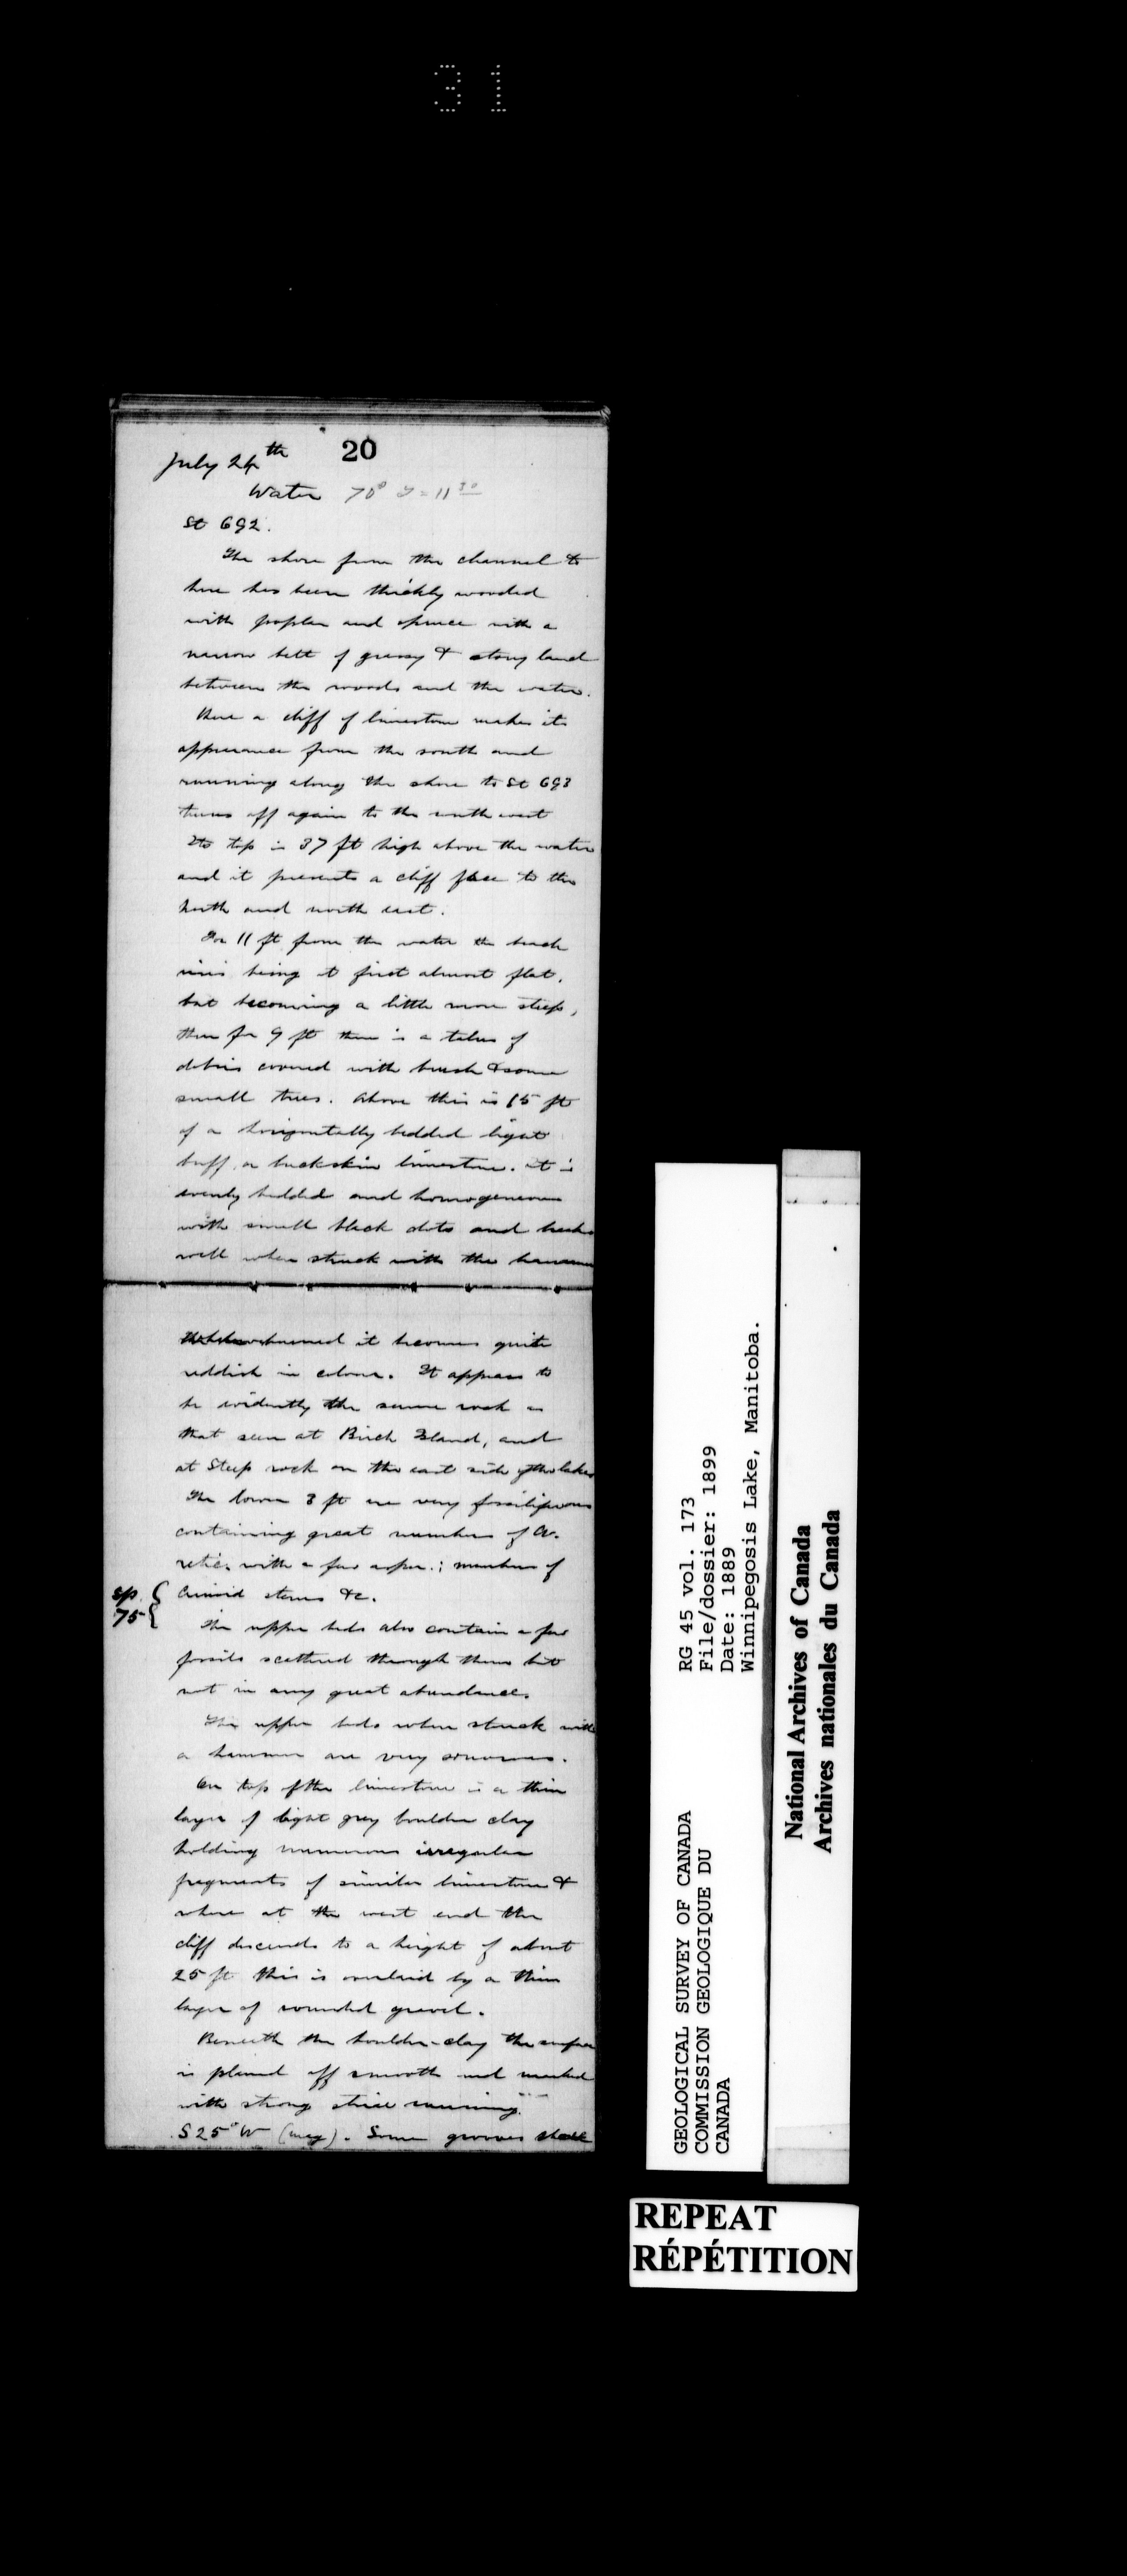 31
20
July 24th
Water 70° T=11 30
St 692.
The shore from the channel to
here has been thickly wooded
with poplar and spruce with a
narrow belt of grassy & stony land
between the woods and the water.
Here a cliff of limestone makes its
appearance from the south and
running along the shore to St 693
turns off again to the south west
Its top is 37 ft high above the water
and it presents a cliff face to the
north and north east.
For 11 ft from the water the beach
rises being at first almost flat,
but becoming a little more steep,
then for 9 ft there is a talus of
debris covered with brush & some
small trees. Above this is 15 ft
of a horizontally bedded light
buff or buckskin limestone. It is
evenly bedded and homogeneous
with small black dots and breaks
well when struck with the hammer
weathered it becomes quite
reddish in colour. It appears to
be evidently the same rock as
that seen at Birch Island, and
at Steep rock on the east side of the lake
The lower 3 ft are very fossiliferous
containing great numbers of A.
retic. with a few asper.; numbers of
Crinoid stems &c.
sp.
75
The upper beds also contain a few
fossils scattered through them but
not in any great abundance.
The upper beds when struck with
a hammer are very sonorous.
On top of the limestone is a thin
layer of light grey boulder clay
holding numerous irregular
fragments of similar limestone &
where at the west end the
cliff descends to a height of about
25 ft this is overlaid by a thin
layer of rounded gravel.
Beneath the boulder-clay the surface
is planed off smooth and marked
with strong striae running
S25°W (mag). Some grooves
RG 45 vol. 173
File/dossier: 1899
Date: 1889
Winnipegosis Lake, Manitoba.
GEOLOGICAL SURVEY OF CANADA
COMMISSION GEOLOGIQUE DU
CANADA
National Archives of Canada
Archives nationales du Canada
REPEAT
RÉPÉTITION